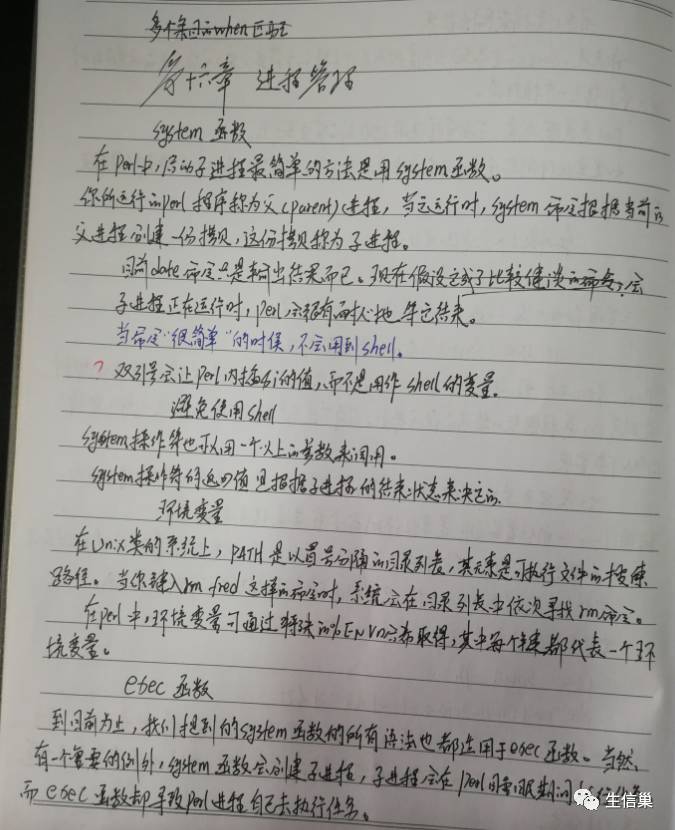 多个条目的when匹配
第十六章 进程管理
system 函数
在Perl中,启动子进程最简单的方法是用system函数。
你所运行的Perl 程序称为父(parent)进程,当它运行时,system 命令根据当前的
父进程创建一份拷贝,这份拷贝称为子进程。
目前date命令只是输出结果而已。现在假设它成了比较健谈的命令,会
子进程正在运行时,Perl会很有耐心地等它结束。
当命令“很简单”的时候,不会用到shell。
? 双引号会让Perl内插的值,而不是用作shell的变量.
避免使用shell
system操作符也可以用一个以上的参数来调用。
system操作符的返回值是根据子进程的结束状态来决定的.
环境变量
在Unix类的系统上,PATH是以冒号分隔的目录列表,其元素是可执行文件的搜索
路径。当你键入rm fred 这样的命令时,系统会在目录列表中依次寻找rm命令。
在Perl中,环境变量可通过特殊的%ENV哈希取得,其中每个键都代表一个环
境变量。
exec 函数
到目前为止,我们提到的system函数的所有语法也都适用于exec函数。当然,
有一个重要的例外,system函数会创建子进程,子进程会在Perl睡眠期间
而exec函数却导致Perl进程自己去执行任务。
生信巢